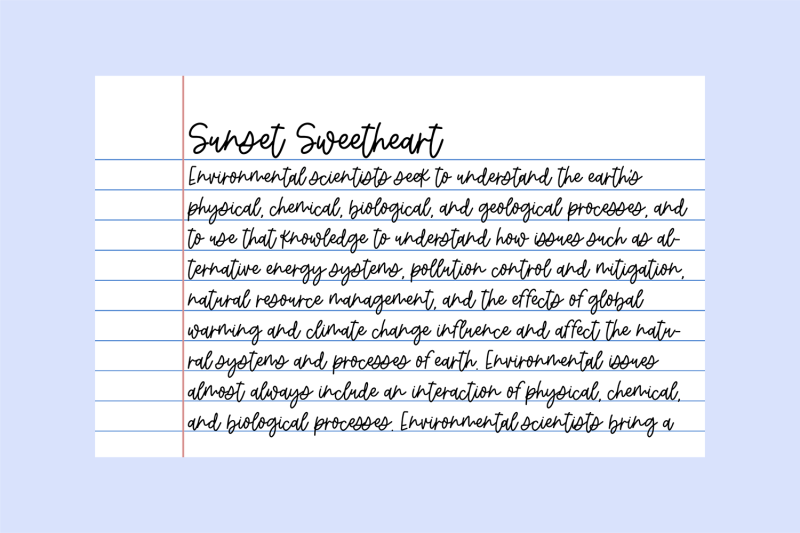 Sunset Sweetheart
Environmental scientists seek to understand the earth's
physical, chemical, biological, and geological processes, and
to use that knowledge to understand how issues such as al-
ternative energy systems, pollution control and mitigation,
natural resource management, and the effects of global
warming and climate change influence and affect the natu-
ral systems and processes of earth. Environmental issues
almost always include an interaction of physical, chemical,
and biological processes. Environmental scientists bring a